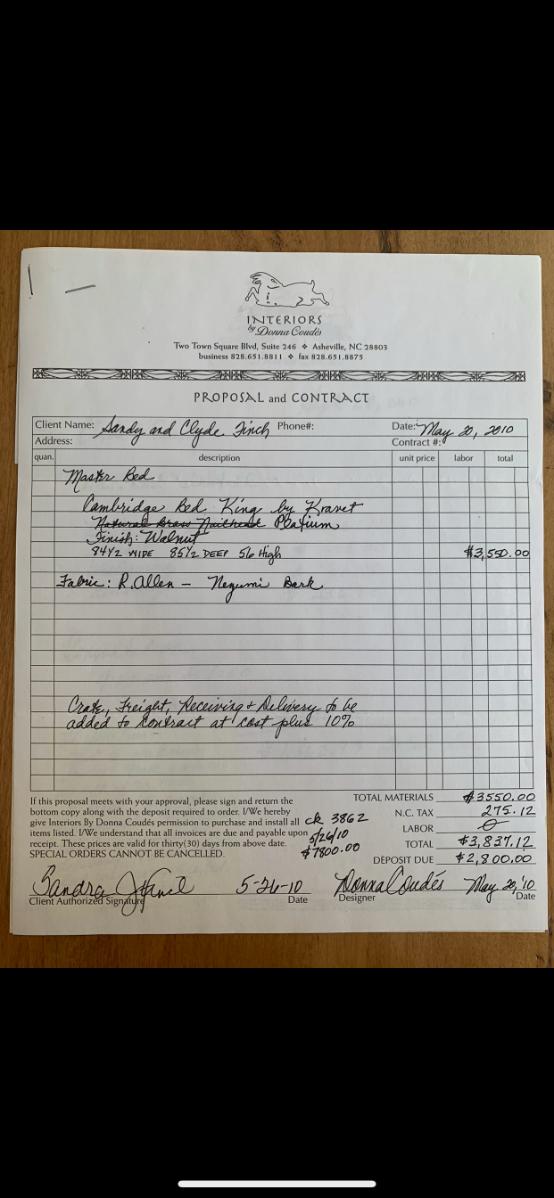 INTERIORS
by Donna Coudés
Two Town Square Blvd, Suite 246 ❖ Asheville, NC 28803
business 828.651.8811 ❖ fax 828.651.8875
PROPOSAL and CONTRACT
Client Name: Sandy and Clyde Finch Phone#: Date: May 20, 2010
Address: Contract #:
quan. description unit price labor total
Master Bed
Cambridge Bed King by Kravet
Natural Brass Nailhead Platium
Finish: Walnut
84 1/2 WIDE 85 1/2 DEEP 56 High $3,550.00
Fabric: R. Allen - Negumi Bark
Crate, Freight, Receiving & Delivery to be
added to contract at cost plus 10%
If this proposal meets with your approval, please sign and return the
bottom copy along with the deposit required to order. I/We hereby
give Interiors By Donna Coudés permission to purchase and install all
items listed. I/We understand that all invoices are due and payable upon
receipt. These prices are valid for thirty(30) days from above date.
SPECIAL ORDERS CANNOT BE CANCELLED.
ck 3862
5/26/10
$7800.00
TOTAL MATERIALS $3550.00
N.C. TAX 275.12
LABOR
TOTAL $3,837.12
DEPOSIT DUE $2,800.00
Sandra J 5-26-10 Donna Coudés May 20, '10
Client Authorized Signature Date Designer Date